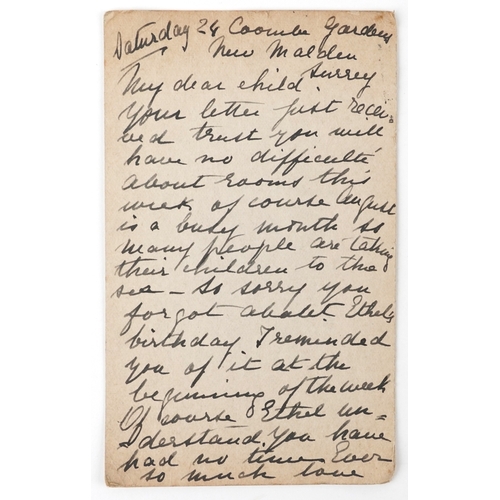 Saturday 24 Coombe Gardens
New Malden
Surrey
My dear child
Your letter just recei-
ved trust you will
have no difficulté
about rooms this
week of course August
is a busy month so
many people are taking
their children to the
sea - So sorry you
forgot about Ethel's
birthday I reminded
you of it at the
beginning of the week
Of course Ethel un-
derstand. You have
had no time Ever
so much love